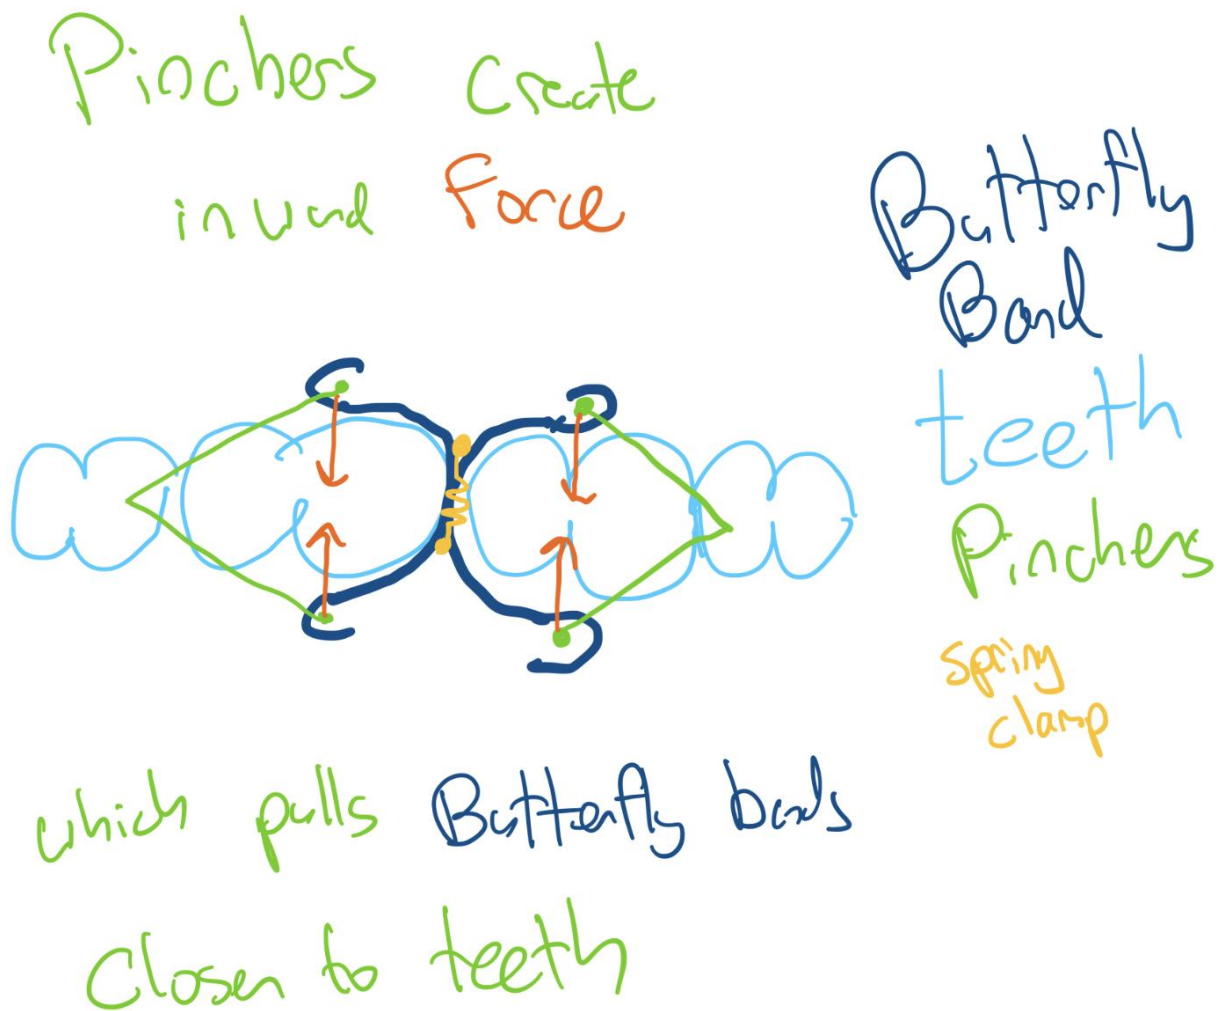 Pinchers create
inward force
Butterfly
Band
teeth
Pinchers
spring
clamp
which pulls Butterfly bands
closer to teeth